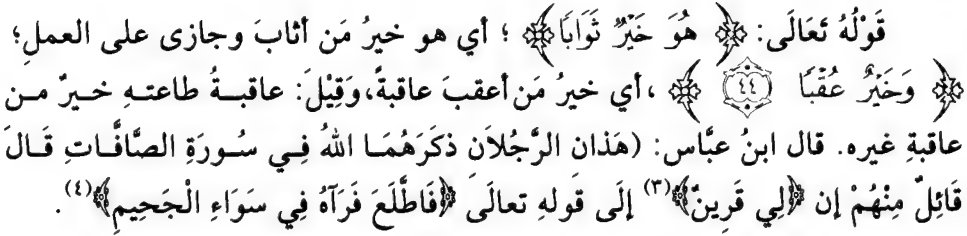 قَوْلُهُ تَعَالَى: ﴿ هُوَ خَيْرٌ ثَوَابًا﴾ ؛ أي هو خيرُ مَن أثابَ وجازى على العملِ؛
﴿ وَخَيْرٌ عُقْبًا ﴿٤٤﴾ ﴾ ،أي خيرُ مَن أعقبَ عاقبةً،وَقِيْلَ: عاقبـــةُ طاعتـهِ خــيرٌ مـن
عاقبةِ غيره. قال ابنُ عبَّاس: (هَذَان الرَّجُلاَن ذكَرَهُمَـا اللهُ فِـي سُـورَةِ الصَّافَّـاتِ قَـالَ
قَائِلٌ مِنْهُمْ إن ﴿لِي قَرِينٌ﴾(٣) إلَى قَولهِ تعالَى ﴿فَاطَّلَعَ فَرَآهُ فِي سَوَاءِ الْجَحِيمِ﴾(٤) .